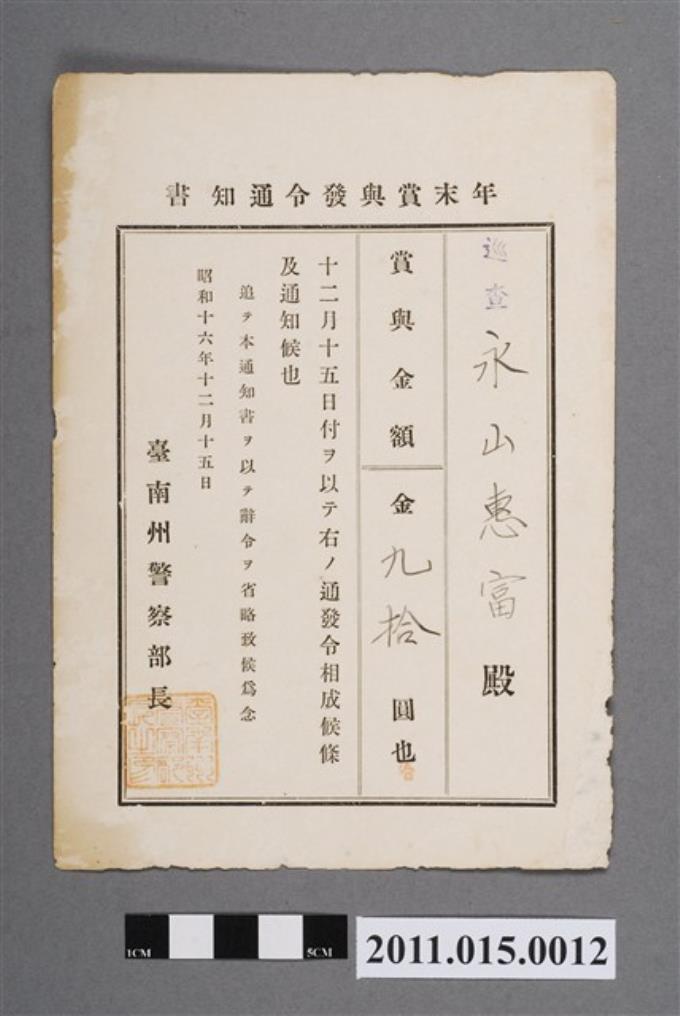 年末賞與發令通知書
巡查 永山惠富 殿
賞與金額
金九拾圓也
十二月十五日付ヲ以テ右ノ通發令相成候條
及通知候也
追テ本通知書ヲ以テ辭令ヲ省略致候爲念
昭和十六年十二月十五日
臺南州警察部長
1CM
5CM
2011.015.0012